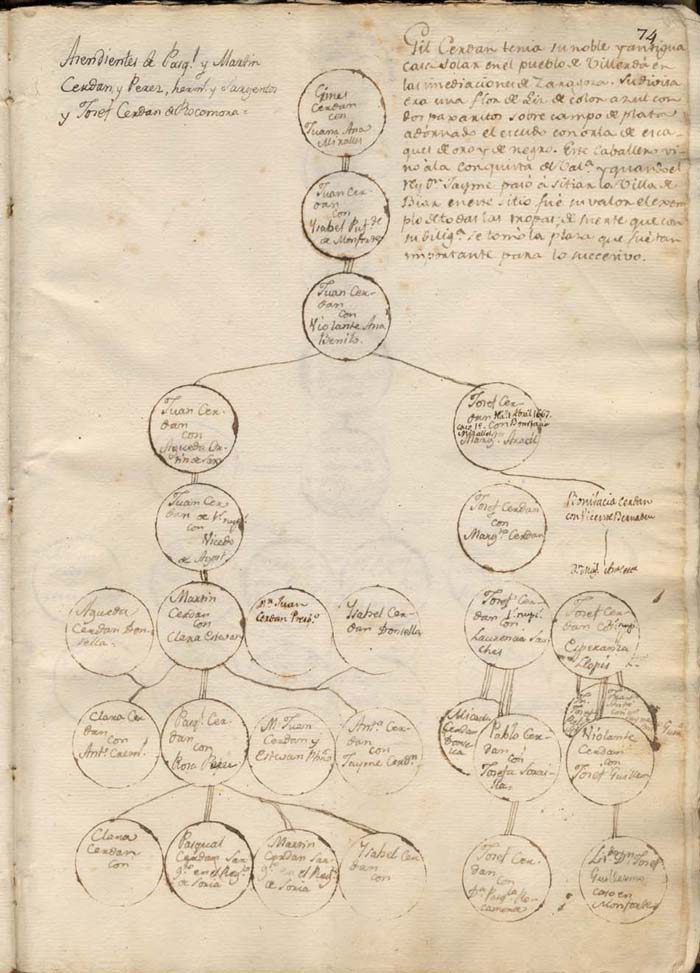 74
Arendientes de Pasql. y Martin
Cerdan y Perez, herms. y Sargentos
y Josef Cerdan de Rocamora =
Gil Cerdan tenia su noble y antigua
casa solar en el pueblo de Villerda en
las imediaciones de Zaragoza. Su divisa
era una flor de Liz de color azul con
dos paxaritos sobre campo de plata
adornado el escudo con orla de esca-
ques de oro y de negro. Este caballero vi-
no à la conquista de Vala. y quando el
rey Dn. Jayme pasó à sitiar la Villa de
Biar en ese sitio fué su valor el exem-
plo de todas las tropas; de suerte que con
su diliga. se tomó la plaza que fué tan
importante para lo succesivo.
Gines
Cerdan
con
Juana Ana
Miralles
Juan Cer-
dan
con
Ysabel
de Monforte
Juan Cer-
dan
con
Violante Ana
Benito.
Juan Cer-
dan
con
Agueda
Josef Cer-
dan Abril 1667.
con
Margta.
Juan Cer-
dan
con
Vicedo
de Agost
Josef Cer-
dan
con
Margta. Cerdan
Bonifacia Cerdan
con Vicente Bernabeu
Agueda
Cerdan Don-
sella.
Martin
Cerdan
con
Clara Estevan
Juan
Cerdan Presbo.
Ysabel Cer-
dan Donsella
Josef Cer-
dan
con
Laurencia San-
ches
Josef Cer-
dan
Esperanza
Llopis
Clara Cer-
dan
con
Anto.
Pasql. Cer-
dan
con
Rosa Perez
M. Juan
Cerdan y
Estevan
Anta. Cer-
dan
con
Jayme Cerdn.
Micaela
Cerdan
Donse-
lla
Pablo Cer-
dan
con
Josefa
Violante
Cerdan
con
Josef Guillen
Clara
Cerdan
con
Pasqual
Cerdan Sar-
gto. en el Regto.
de Soria
Martin
Cerdan Sar-
gto. en el Regto.
de Soria
Ysabel Cer-
dan
con
Josef Cer-
dan
con
Pasqla. Ro-
camora
Dn. Josef
Guillermo
caso en
Monforte